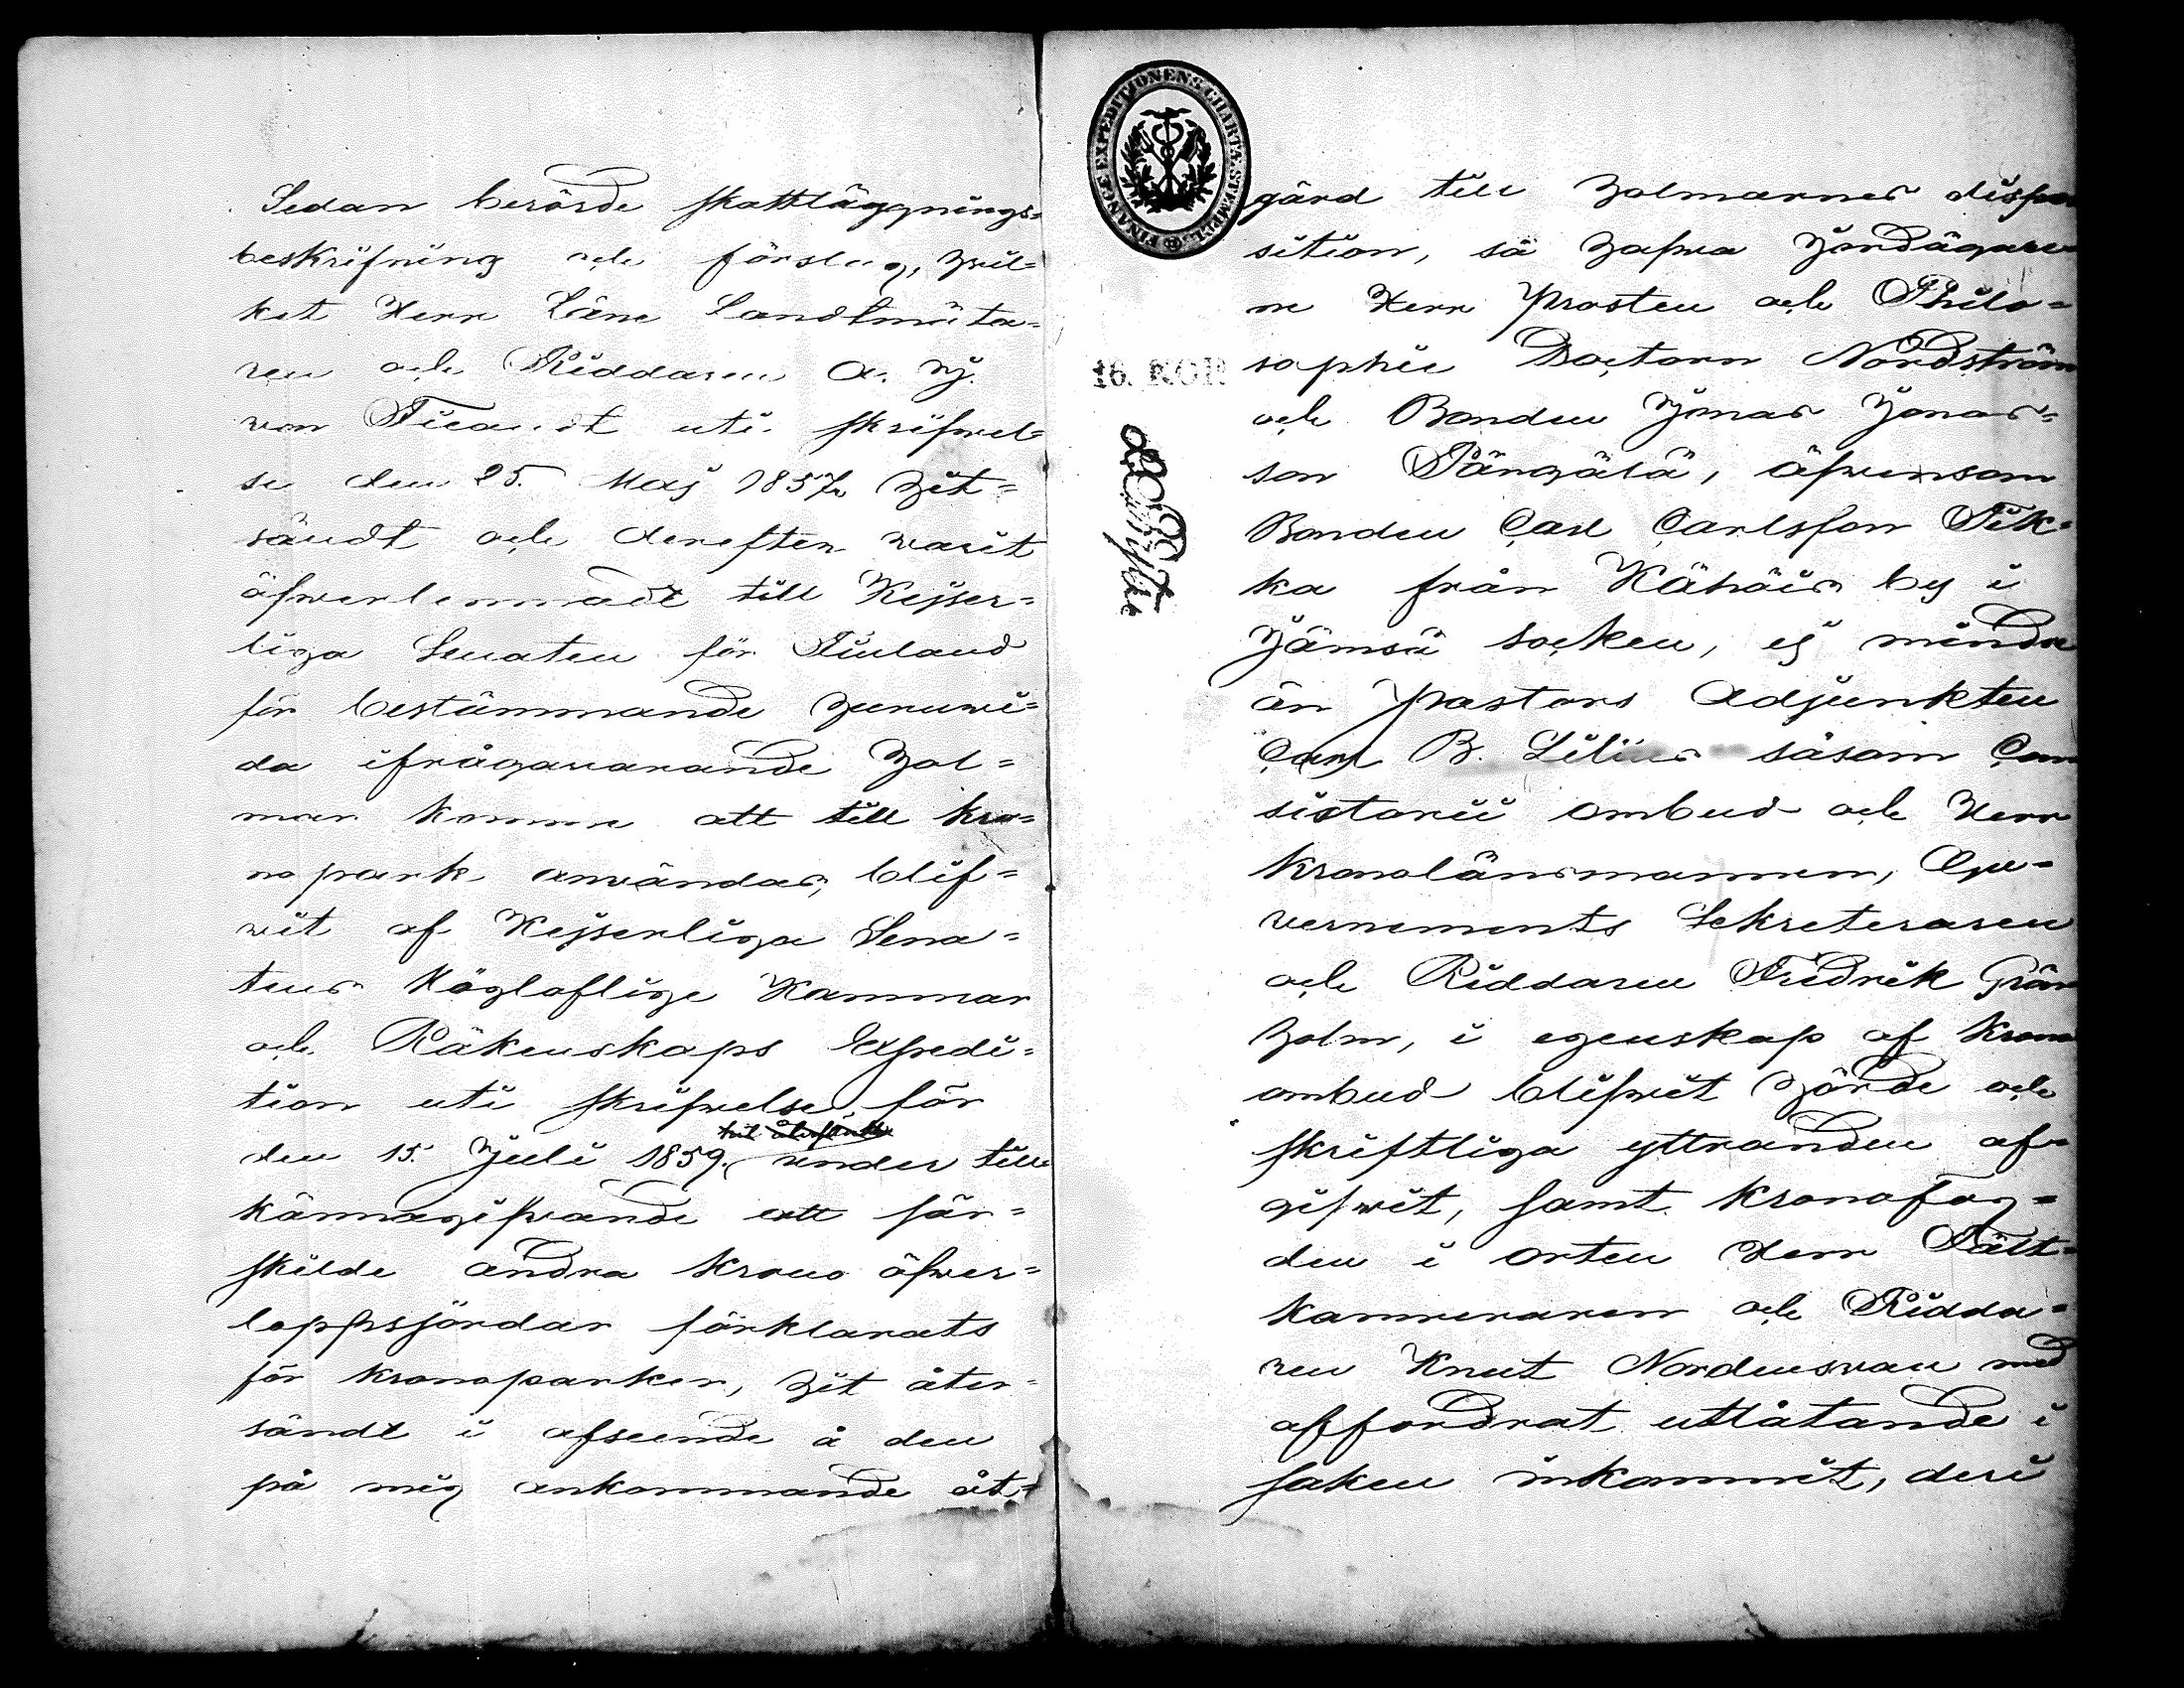 Sedan berörde skattläggnings=
beskrifning och förslag, hvil=
ket Herr Läne Landtmäta=
ren och Riddaren A. J.
von Fieandt uti skrifvel=
se den 25. Maj 1857 hit=
sändt och derefter varit
öfverlemnadt till Kejser=
liga Senaten för Finland
för bestämmande huruvi=
da ifrågavarande hol=
mar komme att till kro=
nopark användas, blif=
vit af Kejserliga Sena=
tens Högloflige Kammar
och Räkenskaps Expedi=
tion uti skrifvelse för
den 15. Juli 1859. under till
kännagifvande att sär=
skilde andra krono öfver=
loppsjordar förklarats
för kronoparker, hit åter=
sändt i afseende å den
på mig ankommande åt=
FINANCE EXPEDITIONENS CHARTÆ STEMPEL
16. KOP
gärd till holmarnes dispo
sition, så hafva Jordägare
ne Herr Prosten och Philo=
sophie Doctorn Nordström
och Bonden Jonas Jonas=
son Pängälä, äfvensom
Bonden Carl Carlsson Tik=
ka från Kähöis by i
Jämsä socken, ej mindre
än Pastors Adjunkten
Carl B. Lilius såsom Con
sistorii ombud och Herr
Kronolänsmannen, Gu=
vernements Sekreteraren
och Riddaren Fredrik Grön
holm, i egenskap af Krono
ombud blifvit hörde och
skriftliga yttranden af=
gifvit, samt Kronofog=
den i orten Herr Fält=
kamreraren och Ridda=
ren Knut Nordensvan med
affordrat utlåtande i
saken inkommit, deri